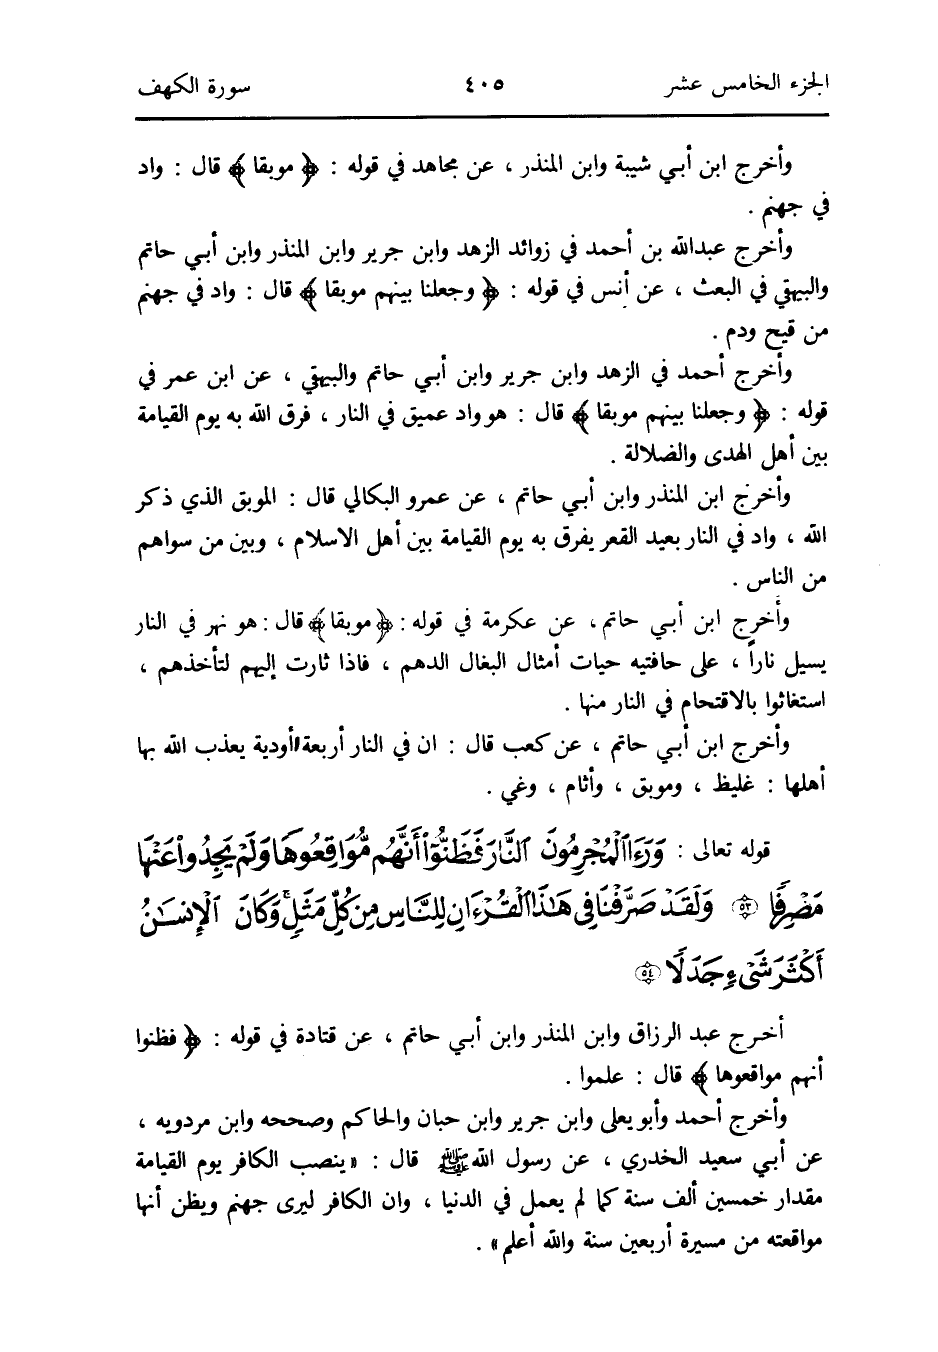 الجزء الخامس عشر ٤٠٥ سورة الكهف
وأخرج ابن أبي شيبة وابن المنذر ، عن مجاهد في قوله : ﴿ موبقا ﴾ قال : واد
في جهنم .
وأخرج عبدالله بن أحمد في زوائد الزهد وابن جرير وابن المنذر وابن أبي حاتم
والبيهقي في البعث ، عن أنس في قوله : ﴿ وجعلنا بينهم موبقا ﴾ قال : واد في جهنم
من قيح ودم .
وأخرج أحمد في الزهد وابن جرير وابن أبي حاتم والبيهقي ، عن ابن عمر في
قوله : ﴿ وجعلنا بينهم موبقا ﴾ قال : هو واد عميق في النار ، فرق الله به يوم القيامة
بين أهل الهدى والضلالة .
وأخرج ابن المنذر وابن أبي حاتم ، عن عمرو البكالي قال : الموبق الذي ذكر
الله ، واد في النار بعيد القعر يفرق به يوم القيامة بين أهل الاسلام ، وبين من سواهم
من الناس .
وأخرج ابن أبي حاتم ، عن عكرمة في قوله : ﴿موبقا﴾ قال : هو نهر في النار
يسيل ناراً ، على حافتيه حيات أمثال البغال الدهم ، فاذا ثارت إليهم لتأخذهم ،
استغاثوا بالاقتحام في النار منها .
وأخرج ابن أبي حاتم ، عن كعب قال : ان في النار أربعة أودية يعذب الله بها
أهلها : غليظ ، وموبق ، وأثام ، وغي .
قوله تعالى : وَرَءَا ٱلْمُجْرِمُونَ ٱلنَّارَ فَظَنُّوٓا۟ أَنَّهُم مُّوَاقِعُوهَا وَلَمْ يَجِدُوا۟ عَنْهَا
مَصْرِفًا ﴿٥٣﴾ وَلَقَدْ صَرَّفْنَا فِى هَـٰذَا ٱلْقُرْءَانِ لِلنَّاسِ مِن كُلِّ مَثَلٍ ۚ وَكَانَ ٱلْإِنسَـٰنُ
أَكْثَرَ شَىْءٍ جَدَلًا ﴿٥٤﴾
أخرج عبد الرزاق وابن المنذر وابن أبي حاتم ، عن قتادة في قوله : ﴿ فظنوا
أنهم مواقعوها ﴾ قال : علموا .
وأخرج أحمد وأبو يعلى وابن جرير وابن حبان والحاكم وصححه وابن مردويه ،
عن أبي سعيد الخدري ، عن رسول الله ﷺ قال : «ينصب الكافر يوم القيامة
مقدار خمسين ألف سنة كما لم يعمل في الدنيا ، وان الكافر ليرى جهنم ويظن أنها
مواقعته من مسيرة أربعين سنة والله أعلم» .